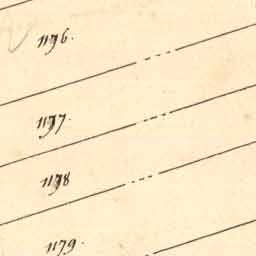 1176.
1177.
1178
1179.